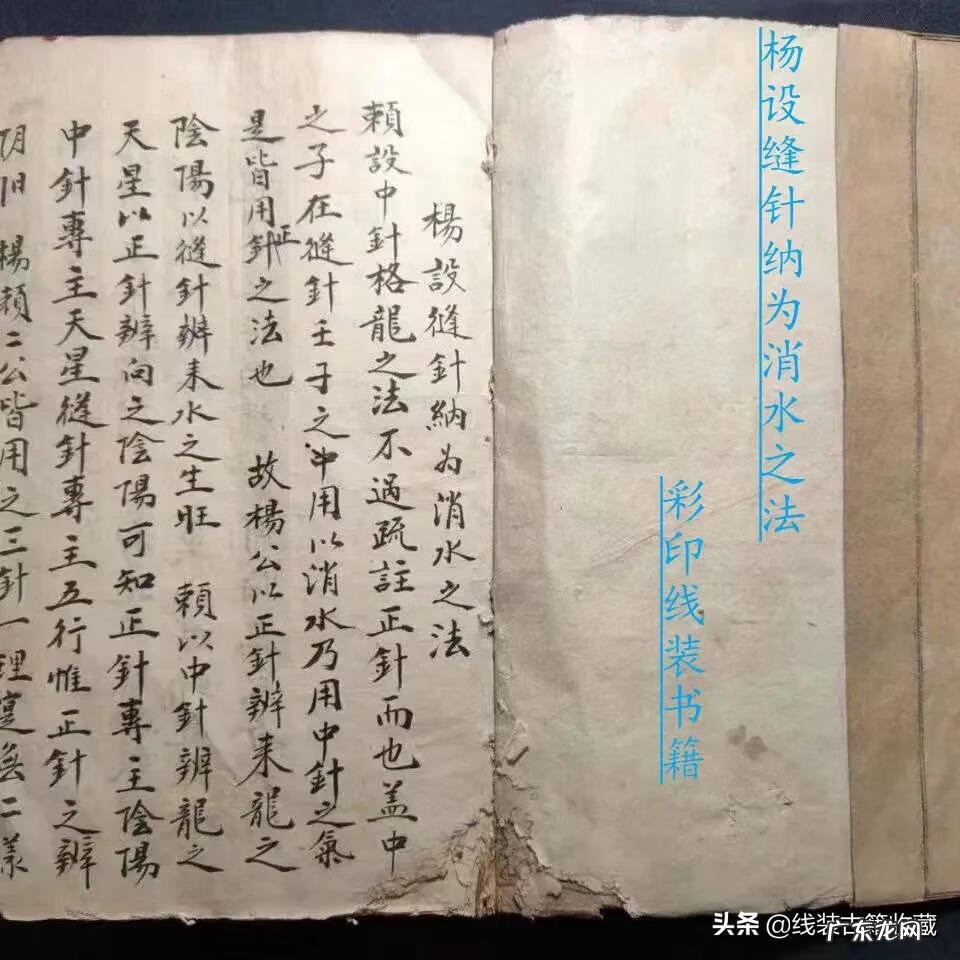 杨设缝针纳为消水之法
彩印线装书籍
楊設縫針納为消水之法
頼設中針格龍之法不过疏註正針而也盖中
之子在縫針壬子之中用以消水乃用中針之氣
是皆用正針之法也 故楊公以正針辨来龍之
陰陽以縫針辨来水之生旺 頼以中針辨龍之
天星以正針辨向之陰陽可知正針專主陰陽
中針專主天星縫針專主五行惟正針之辨
楊頼二公皆用之三針一理寔無二
头条 @线装古籍收藏
广东龙网